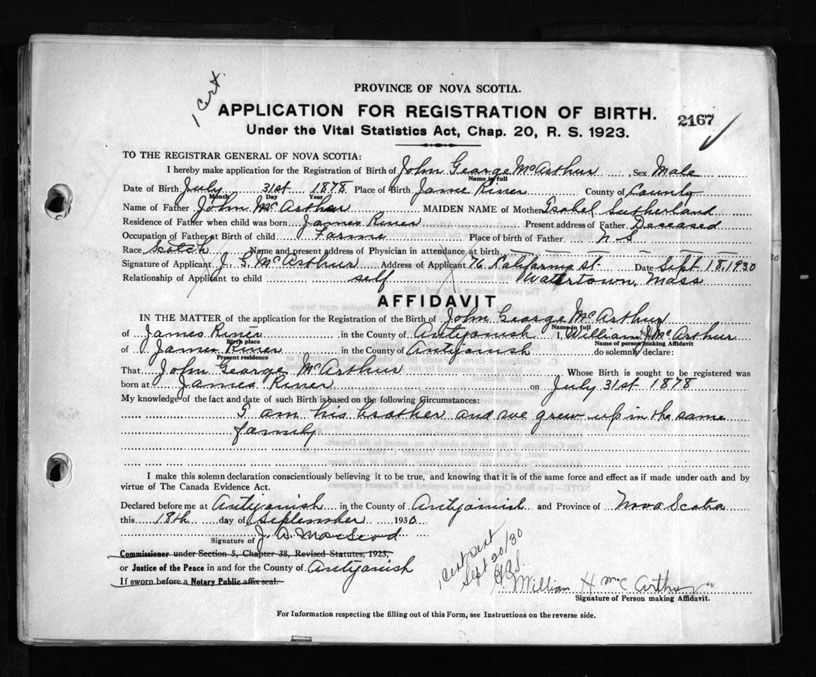 1 Cert.
PROVINCE OF NOVA SCOTIA.
APPLICATION FOR REGISTRATION OF BIRTH.
2167
Under the Vital Statistics Act, Chap. 20, R. S. 1923.
TO THE REGISTRAR GENERAL OF NOVA SCOTIA:
I hereby make application for the Registration of Birth of John George McArthur Sex Male
Name in full
Date of Birth July 31st 1878 Place of Birth James River County of County
Month Day Year
Name of Father John McArthur MAIDEN NAME of Mother Isabel Sutherland
Residence of Father when child was born James River Present address of Father Deceased
Occupation of Father at Birth of child Farme Place of birth of Father N S
Race Scotch Name and present address of Physician in attendance at birth
Signature of Applicant J. G. McArthur Address of Applicant 76 Kaliforma St. Date Sept 18, 1930
Relationship of Applicant to child self Watertown, Mass
AFFIDAVIT
IN THE MATTER of the application for the Registration of the Birth of John George McArthur
Name in full
of James River in the County of Antigonish I, William H McArthur
Birth place Name of person making Affidavit
of James River in the County of Antigonish do solemnly declare:
Present residence
That John George McArthur Whose Birth is sought to be registered was
born at James River on July 31st 1878
My knowledge of the fact and date of such Birth is based on the following Circumstances:
I am his brother and we grew up in the same
family
I make this solemn declaration conscientiously believing it to be true, and knowing that it is of the same force and effect as if made under oath and by
virtue of The Canada Evidence Act.
Declared before me at Antigonish in the County of Antigonish and Province of Nova Scotia
this 18th day of September 1930
Signature of J. A. MacLeod
Commissioner under Section 5, Chapter 38, Revised Statutes, 1923,
or Justice of the Peace in and for the County of Antigonish
If sworn before a Notary Public affix seal.
1 Cert sent
Sept 20/30
William H McArthur
Signature of Person making Affidavit.
For Information respecting the filling out of this Form, see Instructions on the reverse side.